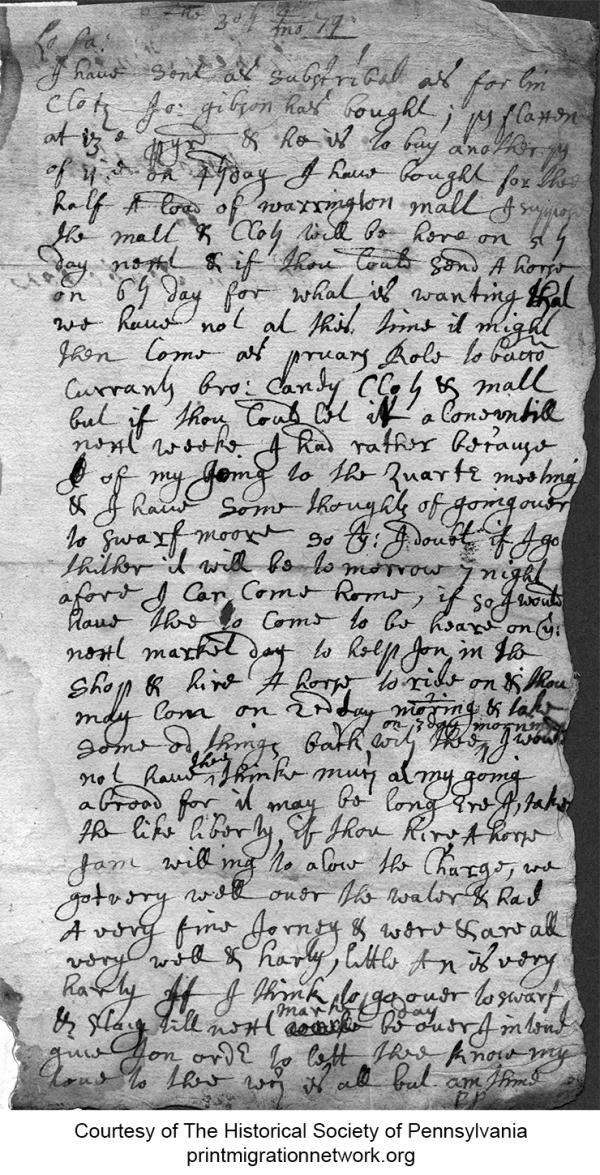 the 30th 9/mo 79
Lo: Fa:
I have sent as subscribed as for lin
Cloth Jo: gibson has bought 1 ps flaxen
at & he is to buy another ps
of on 4th day I have bought for thee
half A load of warrington malt I suppose
the malt & Cloth will be here on 5th
day next & if thou Could send A horse
on 6th day for what is wanting that
we have not at this time it might
then Come as Role tobacco
Currants bro: Candy Cloth & malt
but if thou Could let it alone untill
next weeke I had rather because
of my going to the Quartr meeting
& I have some thoughts of going over
to swarfmoore so I doubt if I go
thither it will be to morrow 7 night
afore I Can Come home, if so I would
have thee to Come to be heare on ye
next market day to help Jon in the
shop & hire A horse to ride on & thou
may Com on 2nd day & take
on 3 day morning
some od things back with thee, I would
not have them thinke much at my going
abroad for it may be long ere I take
the like liberty, if thou hire A horse
I am willing to alow the Charge, we
got very well over the water & had
A very fine Jorney & were & are all
very well & harty, little An is very
harty If I think to go over to swarf
market day
& stay till next be over I intend
give Jon ordr to lett thee know my
love to thee wth is all but am thine
PP
Courtesy of The Historical Society of Pennsylvania
printmigrationnetwork.org